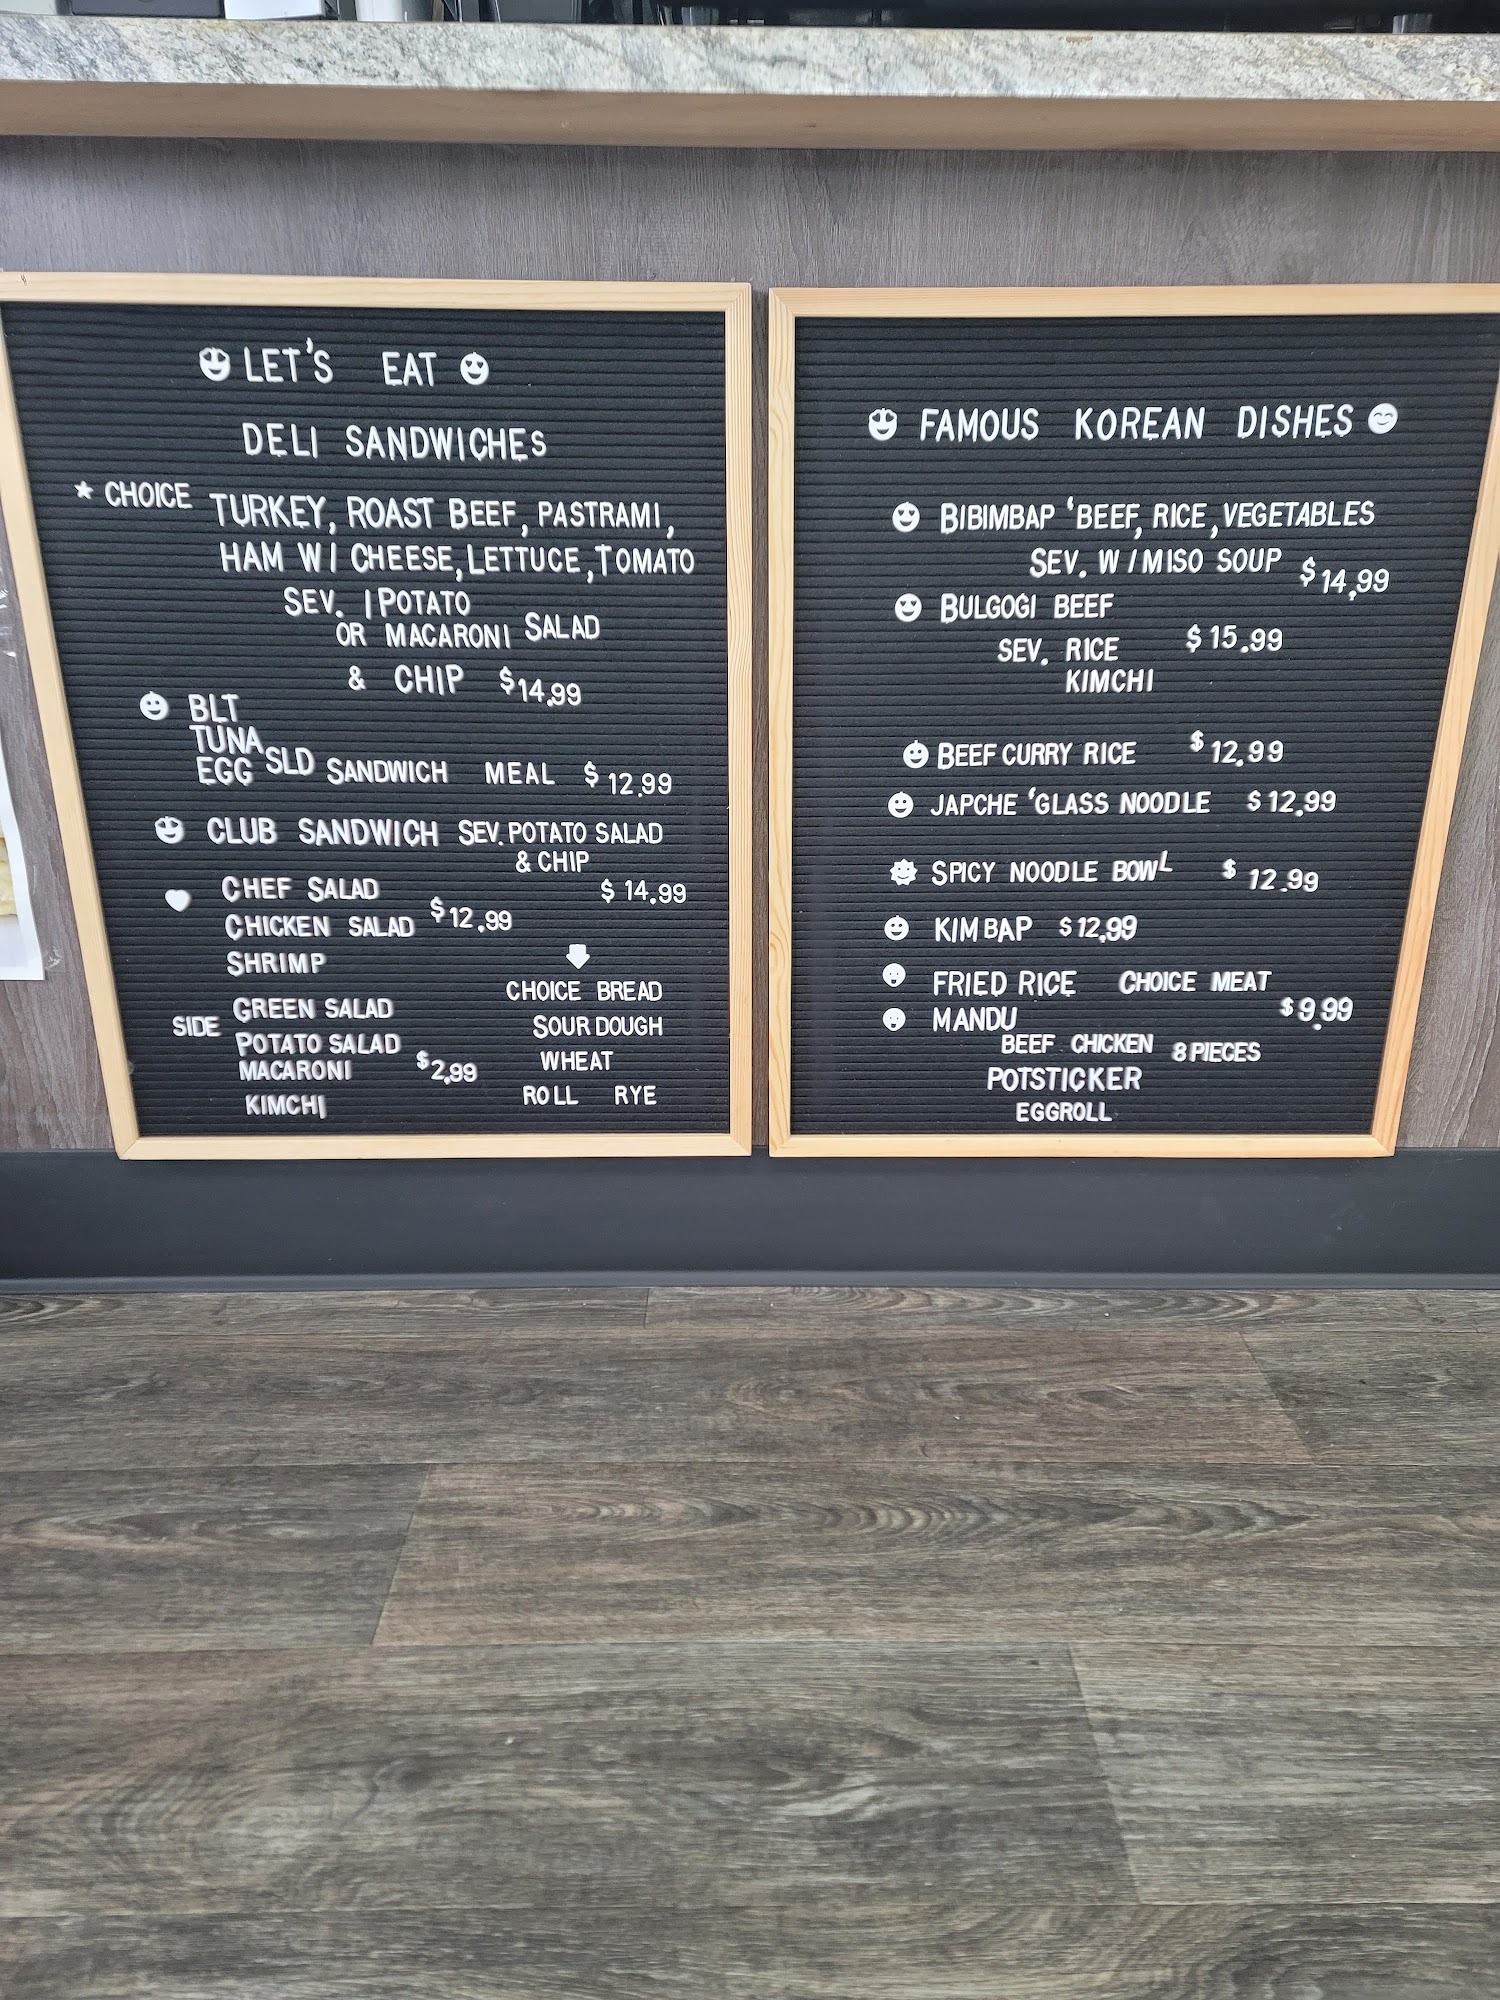 LET'S EAT
DELI SANDWICHES
* CHOICE TURKEY, ROAST BEEF, PASTRAMI,
HAM W/ CHEESE, LETTUCE, TOMATO
SEV. /POTATO
OR MACARONI SALAD
& CHIP $14.99
BLT
TUNA
EGG SLD SANDWICH MEAL $12.99
CLUB SANDWICH SEV. POTATO SALAD
& CHIP
$14.99
CHEF SALAD
CHICKEN SALAD $12.99
SHRIMP
SIDE GREEN SALAD
POTATO SALAD
MACARONI $2,99
KIMCHI
CHOICE BREAD
SOUR DOUGH
WHEAT
ROLL RYE
FAMOUS KOREAN DISHES
BIBIMBAP 'BEEF, RICE, VEGETABLES
SEV. W/MISO SOUP $14,99
BULGOGI BEEF
SEV. RICE $15.99
KIMCHI
BEEF CURRY RICE $12.99
JAPCHE 'GLASS NOODLE $12.99
SPICY NOODLE BOWL $12.99
KIMBAP $12,99
FRIED RICE CHOICE MEAT
MANDU $9.99
BEEF CHICKEN 8 PIECES
POTSTICKER
EGGROLL